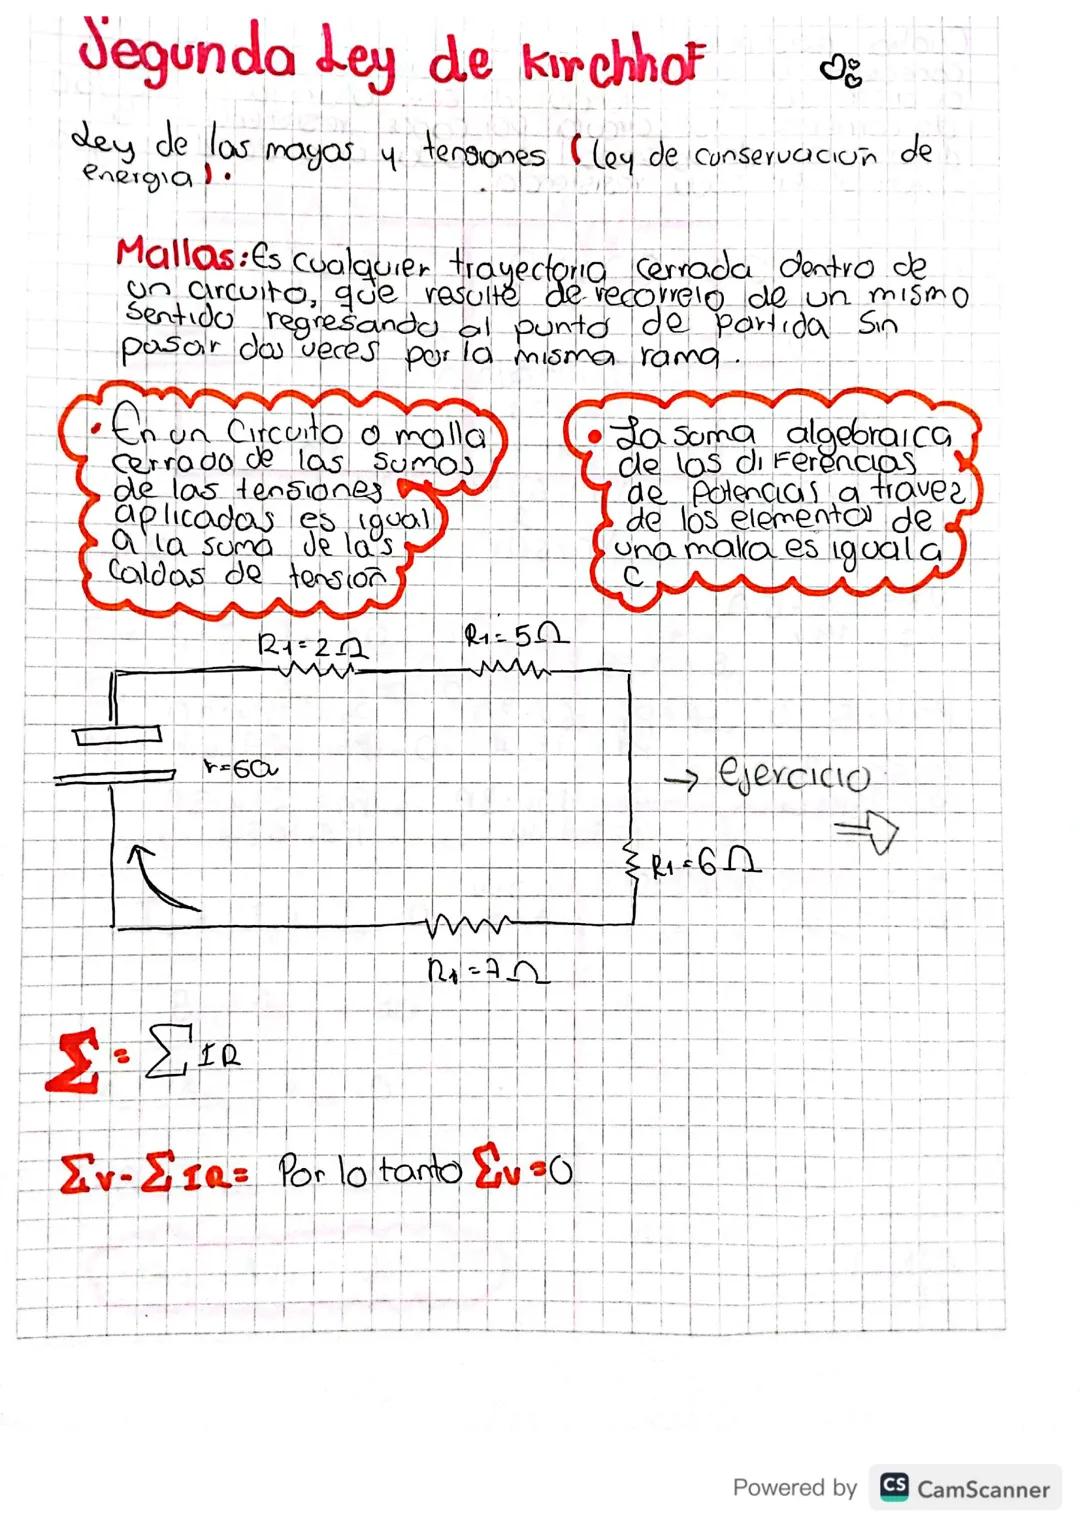 Segunda Ley de kirchhof
Ley de las mayas y tensiones (ley de conservación de
energia).
Mallas: Es cualquier trayectoria cerrada dentro de
un circuito, que resulte de recorrelo de un mismo
sentido regresando al punto de partida sin
pasar dos veces por la misma rama.
• En un Circuito o malla
cerrado de las sumas
de las tensiones
aplicadas es igual
a la suma de las
Caldas de tensión
• La suma algebraica
de las diferencias
de Potencias a travez
de los elementos de
una malla es igual a
C
R1=2Ω
R1=5Ω
r=6Ω
→ ejercicio
R1=6Ω
R1=7Ω
Σ = Σ IR
Σv-ΣIR= Por lo tanto Σv=0
Powered by CS CamScanner